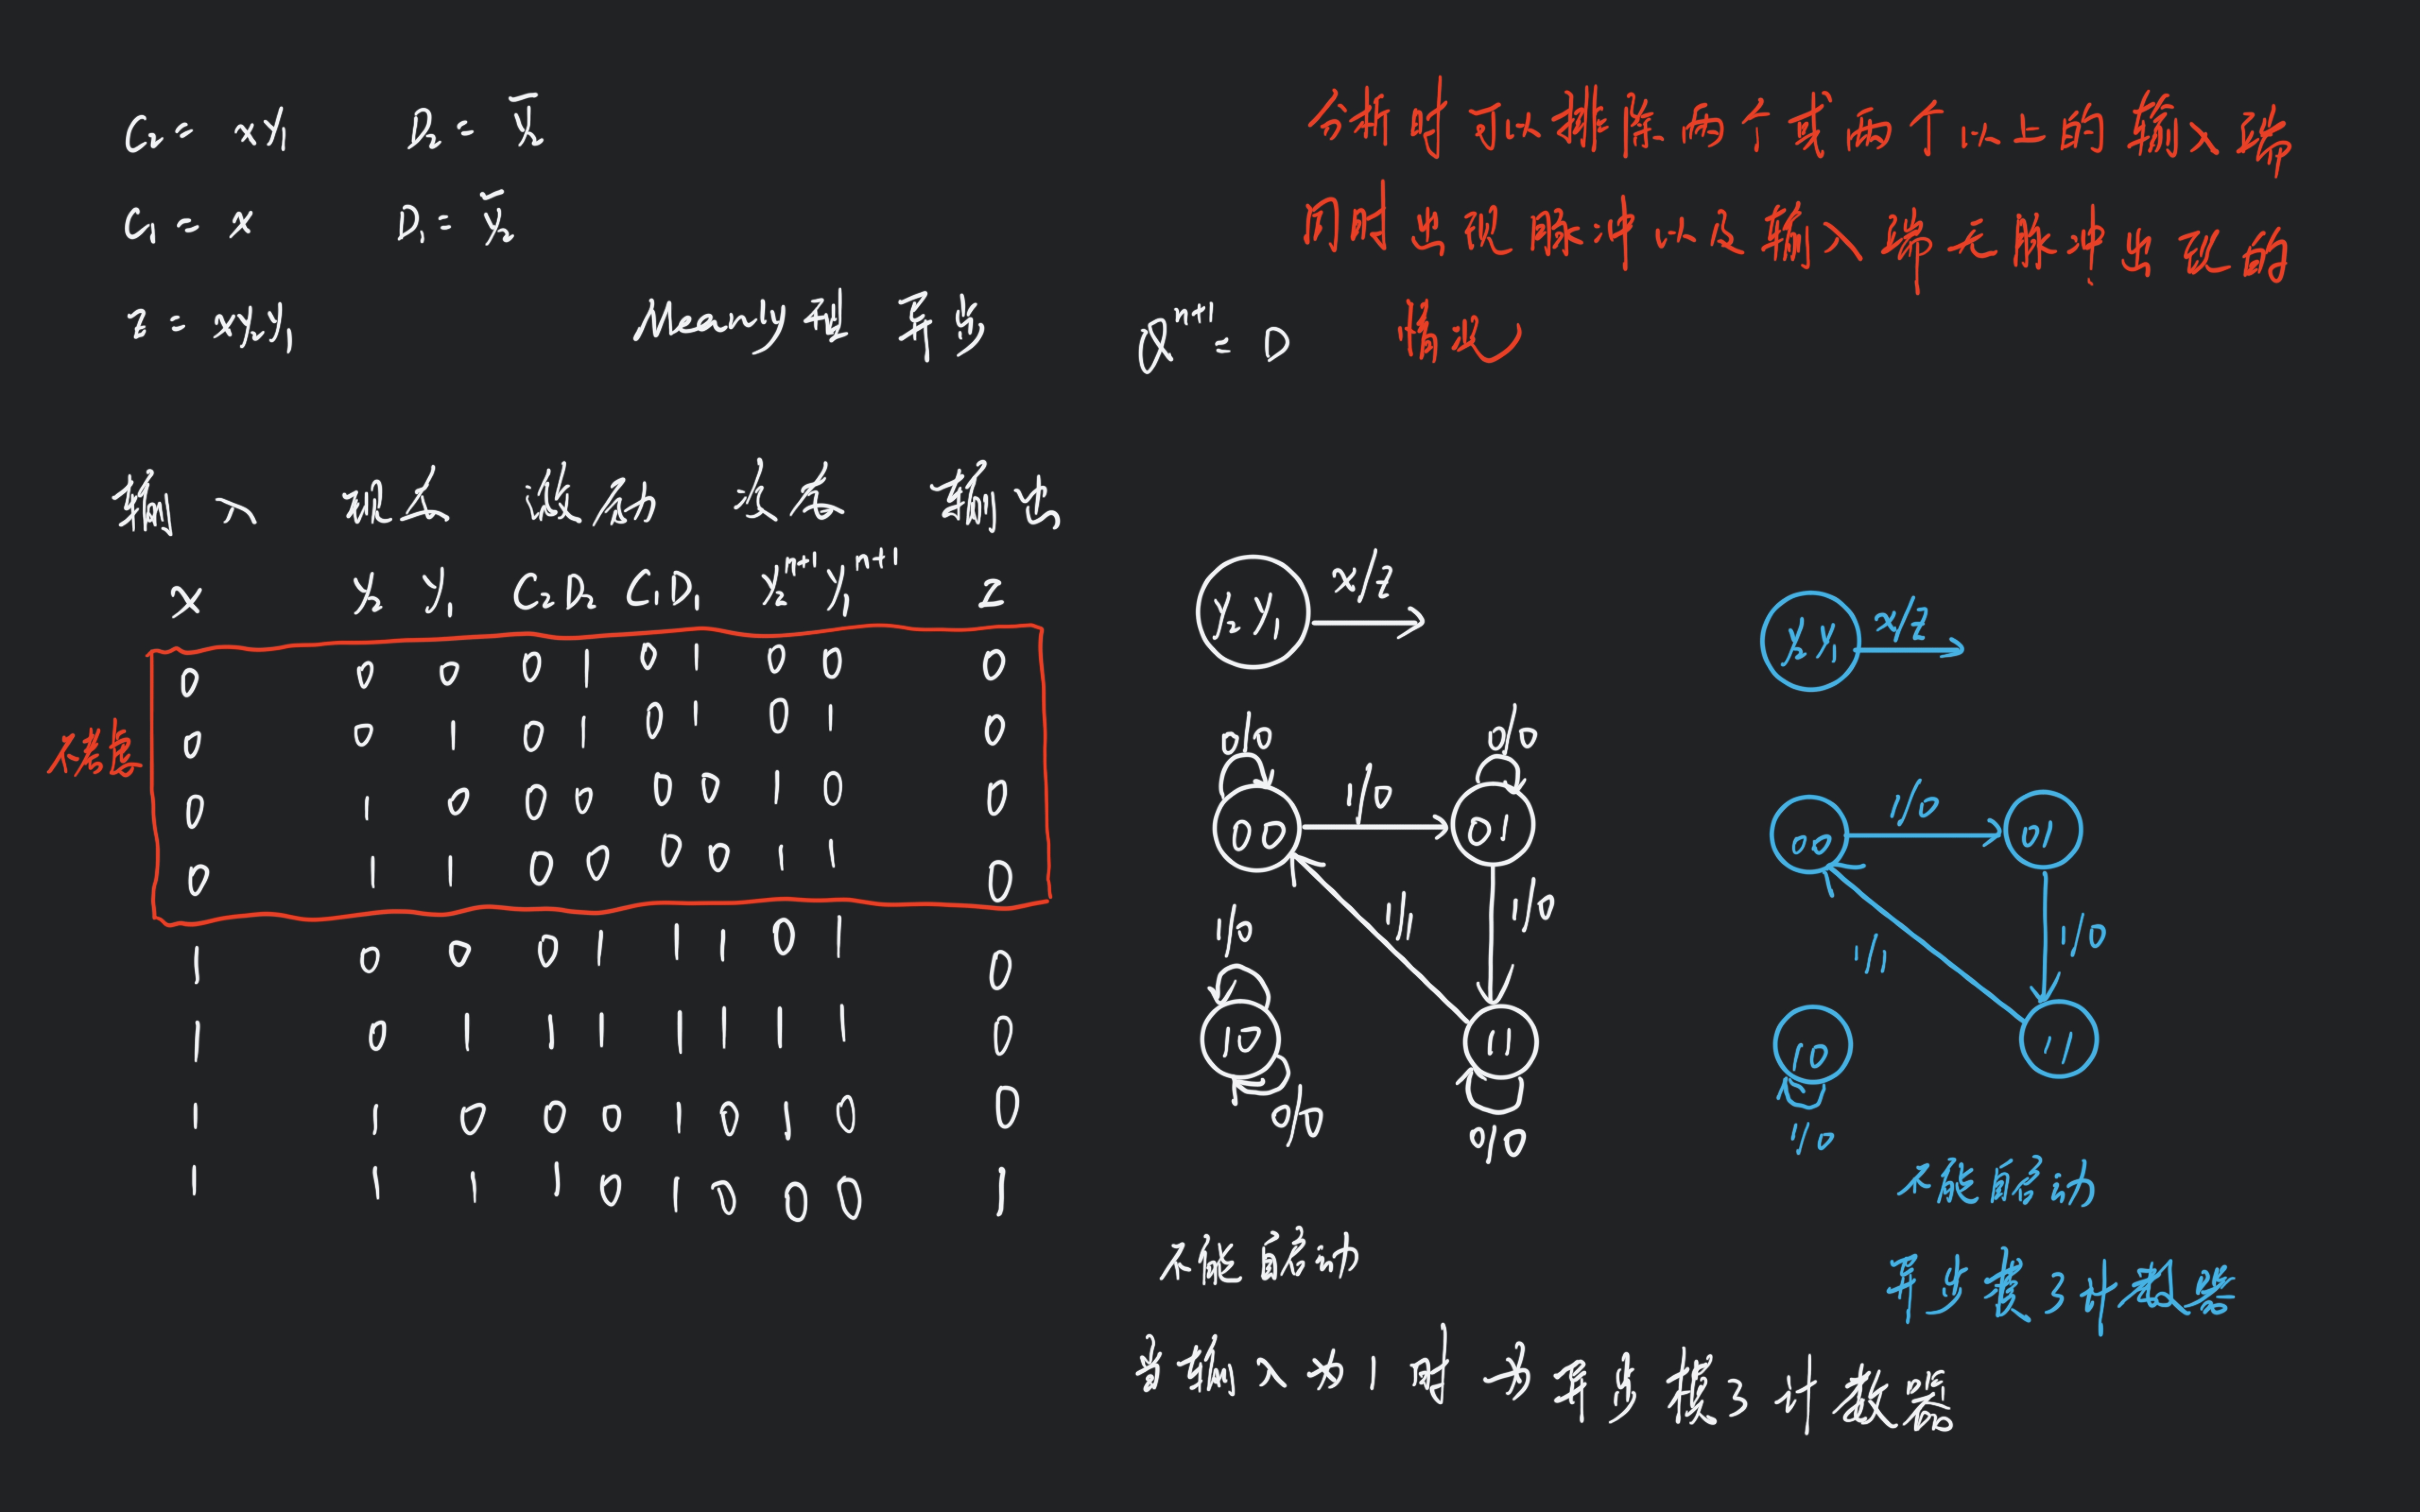 C₂ = xy₁ D₂ = y̅₂
C₁ = x D₁ = y̅₂
z = xy₂y₁ Meanly型 异步 Qⁿ⁺¹ = D
分析时可以排除两个或两个以上的输入端
同时出现脉冲以及输入端无脉冲出现的
情况
输入 现态 激励 次态 输出
x y₂ y₁ C₂ D₂ C₁ D₁ y₂ⁿ⁺¹ y₁ⁿ⁺¹ Z
不考虑
0 0 0 0 1 0 1 0 0 0
0 0 1 0 1 0 1 0 1 0
0 1 0 0 0 0 0 1 0 0
0 1 1 0 0 0 0 1 1 0
1 0 0 0 1 1 1 0 1 0
1 0 1 1 1 1 1 1 1 0
1 1 0 0 0 1 0 1 0 0
1 1 1 1 0 1 0 0 0 1
y₂ y₁ x/z
0/0 0/0
00 1/0 01
1/0 1/1 1/0
10 11
0/0 0/0
不能自启动
当输入为1时为异步模3计数器
y₂ y₁ x/z
00 1/0 01
1/1 1/0
10 11
1/0
不能自启动
异步模3计数器